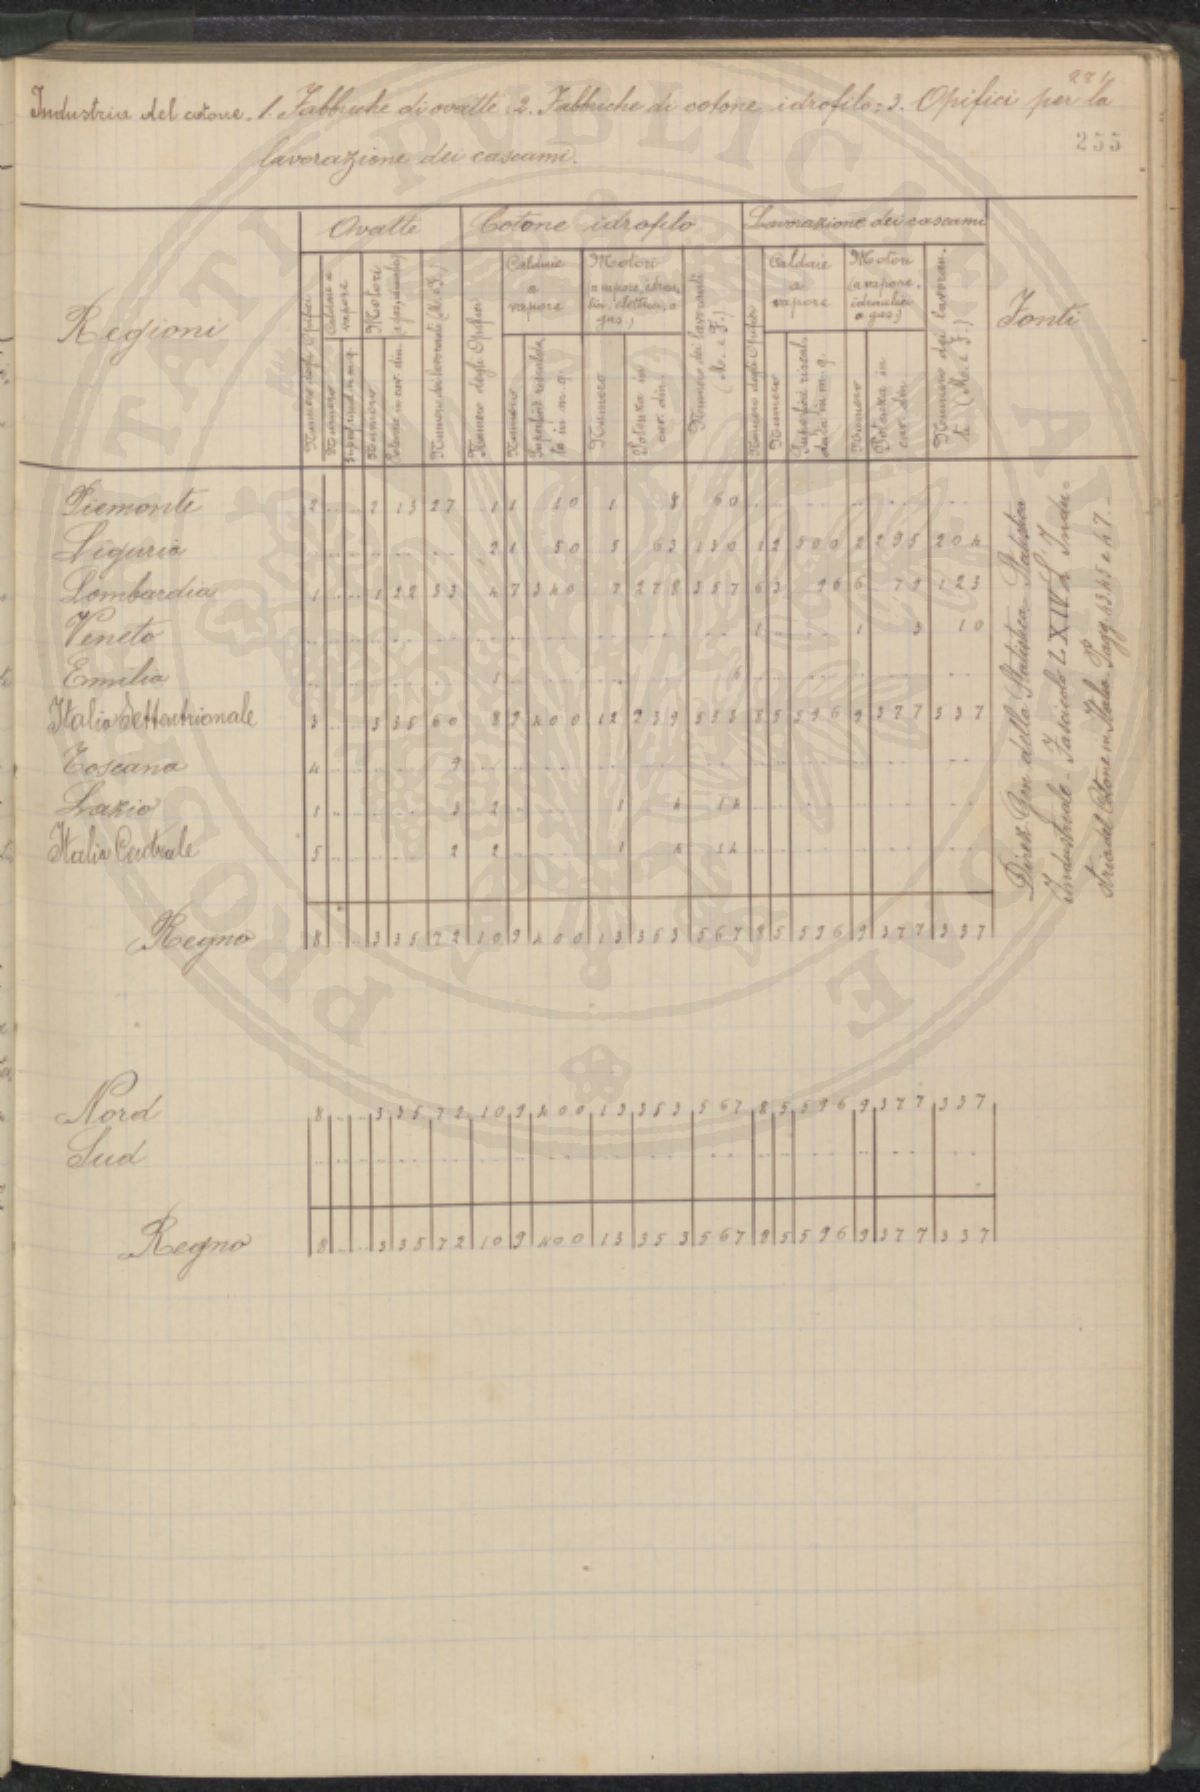 271
Industria del cotone. 1. Fabbriche di ovatte. 2. Fabbriche di cotone idrofilo; 3. Opifici per la
255
lavorazione dei cascami.
Regioni
Ovatte
Cotone idrofilo
Lavorazione dei cascami
Fonti
Numero degli Opifici
Caldaie a vapore
Numero
Motori
Numero
Potenza in cav. din.
Numero dei lavoranti (M. e F.)
Numero degli Opifici
Caldaie a vapore
Numero
Superficie riscaldata in m. q.
Motori
Numero
Potenza in cav. din.
Numero dei lavoranti (M. e F.)
Numero degli Opifici
Caldaie a vapore
Numero
Superficie riscaldata in m. q.
Motori (a vapore, idraulici o gas)
Numero
Potenza in cav. din.
Numero dei lavoranti (M. e F.)
Piemonte 2 .. .. 2 13 27 1 1 10 1 8 60 .. .. .. .. .. ..
Liguria .. .. .. .. .. .. 2 1 50 5 63 130 1 2 500 2 295 204
Lombardia 1 .. .. 1 22 33 4 7 340 7 278 357 6 3 96 6 79 123
Veneto .. .. .. .. .. .. .. .. .. .. .. .. 1 .. .. 1 3 10
Emilia .. .. .. .. .. .. 1 .. .. .. .. 6 .. .. .. .. .. ..
Italia Settentrionale 3 .. .. 3 35 60 8 9 400 12 239 553 8 5 596 9 377 337
Toscana 4 .. .. .. .. 9 .. .. .. .. .. .. .. .. .. .. .. ..
Lazio 1 .. .. .. .. 3 2 .. .. 1 4 14 .. .. .. .. .. ..
Italia Centrale 5 .. .. .. .. 2 2 .. .. 1 4 14 .. .. .. .. .. ..
Regno 8 .. .. 3 35 72 10 9 400 13 353 567 8 5 596 9 377 337
Direz. Gen. della Statistica - Statistica
Industriale - Fascicolo LXIV L'Indu-
stria del Cotone in Italia. Pagg. 43, 45 e 47. -
Nord 8 .. .. 3 35 72 10 9 400 13 353 567 8 5 596 9 377 337
Sud .. .. .. .. .. .. .. .. .. .. .. .. .. .. .. .. .. ..
Regno 8 .. .. 3 35 72 10 9 400 13 353 567 8 5 596 9 377 337